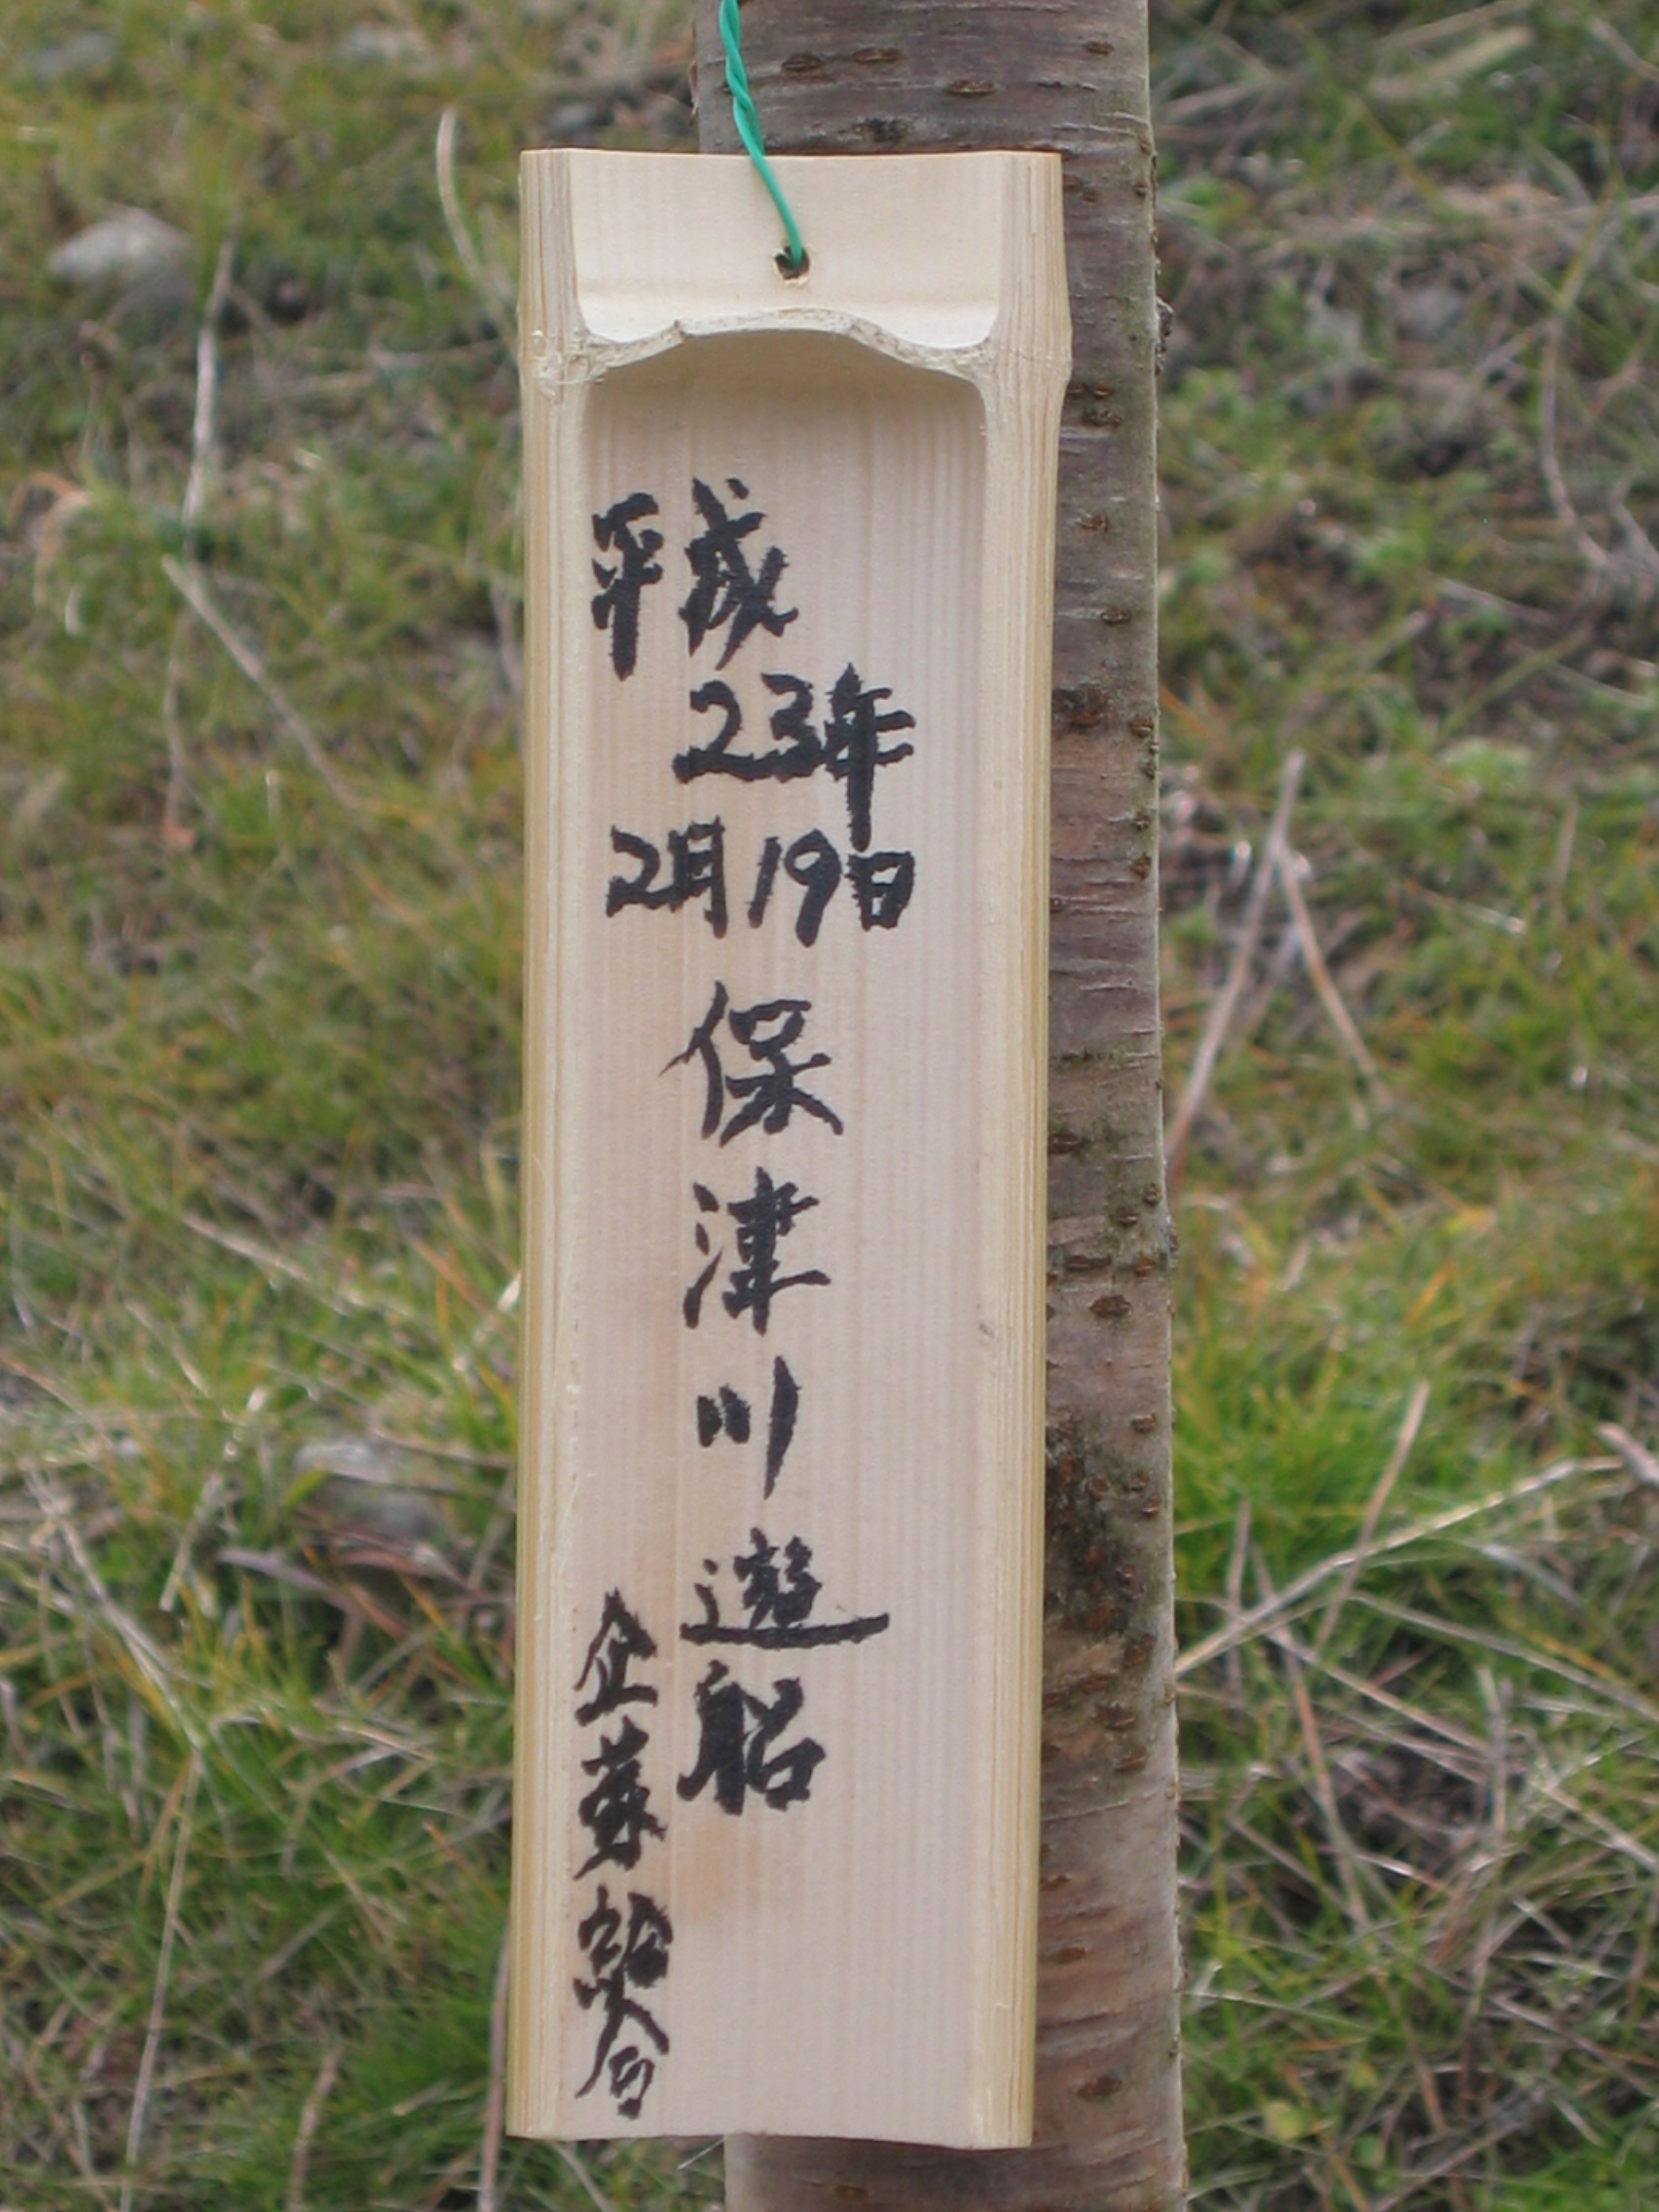 平成
23年
2月19日
保津川遊船
企業組合